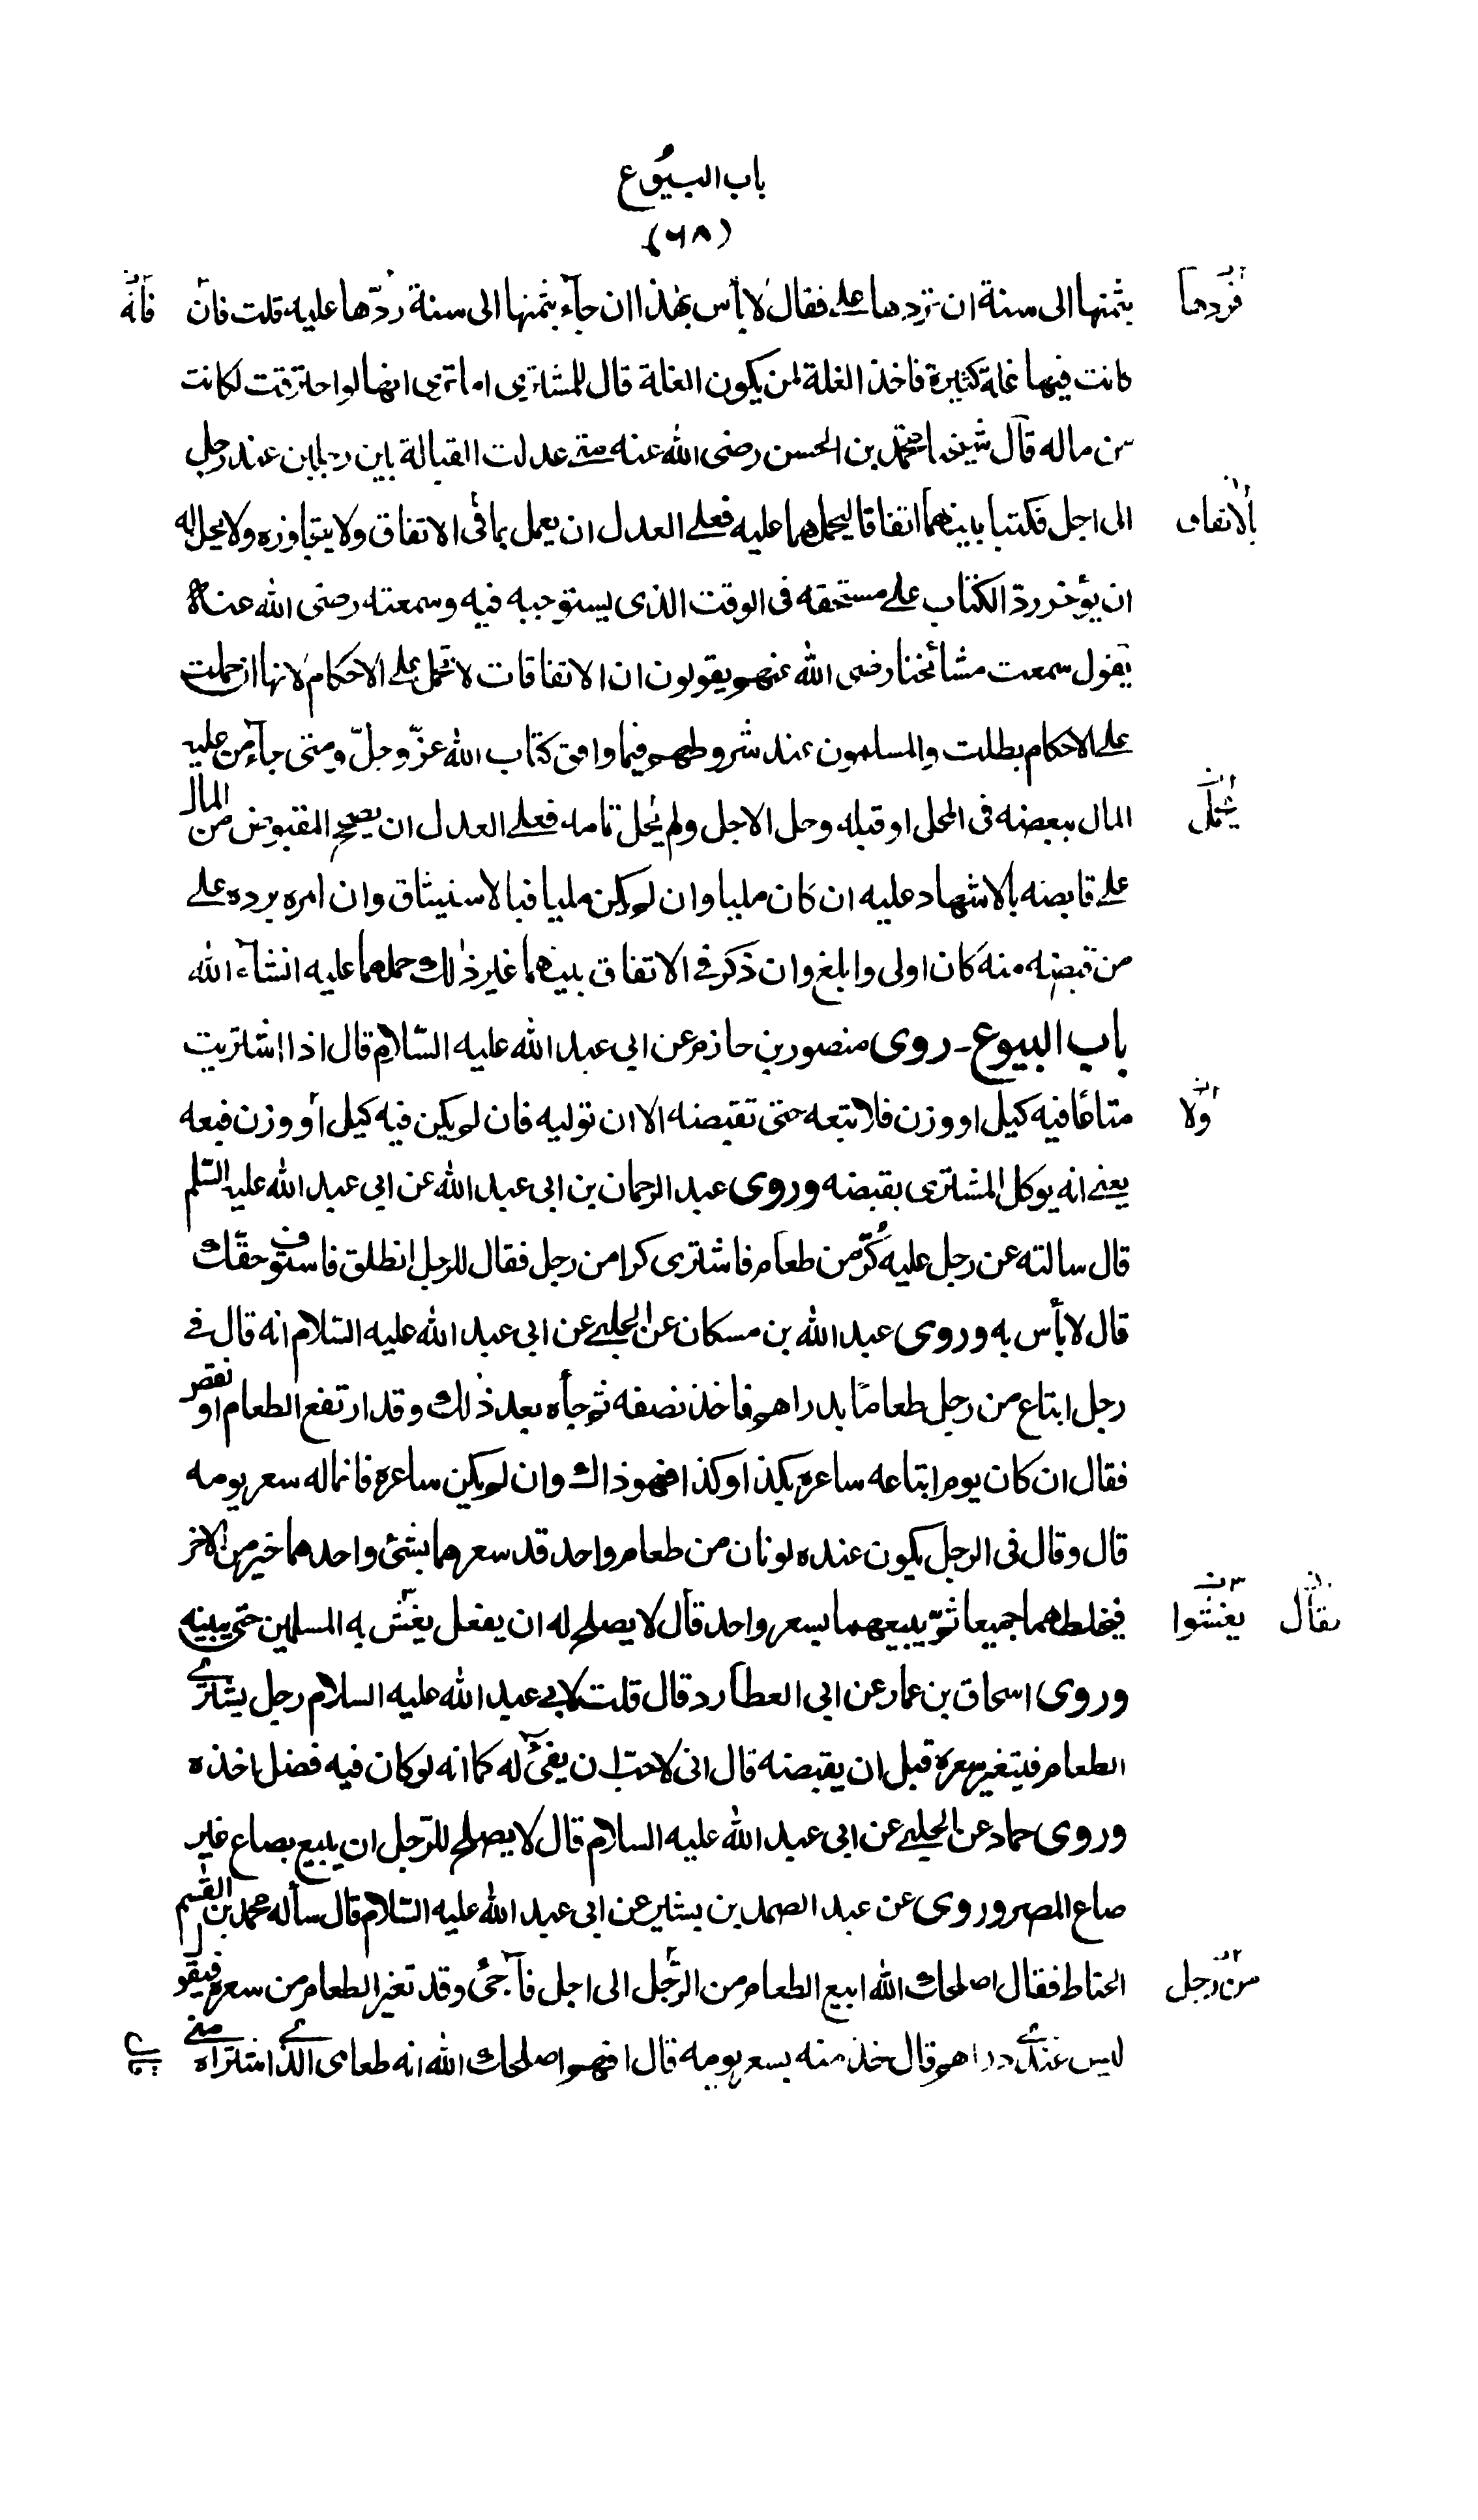 باب البيُوع
(٦٨)
بثمنها الى سنة ان تردها على فقال لا بأس بهذا ان جاء بثمنها الى سنة ردّها عليه قلت فان
فردها
فانه
كانت فيها غلة كثيرة فاخذ الغلة لمن يكون الغلة قال للمشترى اما ترى انها لو احترقت لكانت
من ماله قال شيخنا محمد بن الحسن رضى الله عنه متى عدلت القبالة بين رجلين عند رجل
الى اجل فكتبا بينهما اتفاقا ليحملهما عليه فعلى العدل ان يعمل بما فى الاتفاق ولا يتجاوزه ولا يحل له
بالاتفاق
ان يؤخر ردّ الكتاب على مستحقه فى الوقت الذى يستوجبه فيه وسمعته رضى الله عنه
يقول سمعت مشائخنا رضى الله عنهم يقولون ان الاتفاقات لا تحمل على الاحكام لانها ان حملت
على الاحكام بطلت والمسلمون عند شروطهم فيما وافق كتاب الله عزّ وجلّ ومتى جاء من عليه
المال ببعضه فى المحل او قبله وحل الاجل ولم يحل تمامه فعلى العدل ان يصحح المقبوض من المال
على قابضه بالاشهاد عليه ان كان مليا وان لم يكن مليا فبالاستيثاق وان امره برده على
من قبضه منه كان اولى وابلغ وان ذكر فى الاتفاق بينهما غير ذلك حملهما عليه انشاء الله
باب البيوع ـ روى منصور بن حازم عن ابى عبد الله عليه السّلام قال اذا اشتريت
متاعًا فيه كيل او وزن فلا تبعه حتى تقبضه الا ان توليه فان لم يكن فيه كيل أو وزن فبعه
ولا
يعنى انه يوكل المشترى بقبضه وروى عبد الرحمان بن ابى عبد الله عن ابى عبد الله عليه السّلم
قال سالته عن رجل عليه كُرّ من طعام فاشترى كرا من رجل فقال للرجل انطلق فاستوف حقك
قال لا بأس به وروى عبد الله بن مسكان عن الحلبى عن ابى عبد الله عليه السّلام انه قال فى
رجل ابتاع من رجل طعامًا بدراهم فاخذ نصفه ثم جأه بعد ذلك وقد ارتفع الطعام او نقص
فقال ان كان يوم ابتاعه ساعره بكذا وكذا فهو ذاك وان لم يكن ساعره فانما له سعر يومه
قال وقال فى الرجل يكون عنده لونان من طعام واحد قد سعرهما بشئ واحدهما خير من الاخر
فيخلطهما جميعا ثمّ يبيعهما بسعر واحد قال لا يصلح له ان يفعل يغش به المسلمين حتى يبينه
يغشوا
فقال
وروى اسحاق بن عمار عن ابى العطارد قال قلت لابى عبد الله عليه السلام رجل يشترى
الطعام فيتغير سعره قبل ان يقبضه قال انى لاحبّ ان يفئ له كما انه لو كان فيه فضل اخذه
وروى حماد عن الحلبى عن ابى عبد الله عليه السلام قال لا يصلح للرّجل ان يبيع بصاع غير
صاع المصر وروى عن عبد الصمد بن بشير عن ابى عبد الله عليه السّلام قال سأله محمد بن القسم
الحناط فقال اصلحك الله ابيع الطعام من الرّجل الى اجل فاجئ وقد تغير الطعام من سعره فيقو
من رجل
ليس عندى دراهم قال خذ منه بسعر يومه قال افهم اصلحك الله انه طعامى الذى اشتراه منى